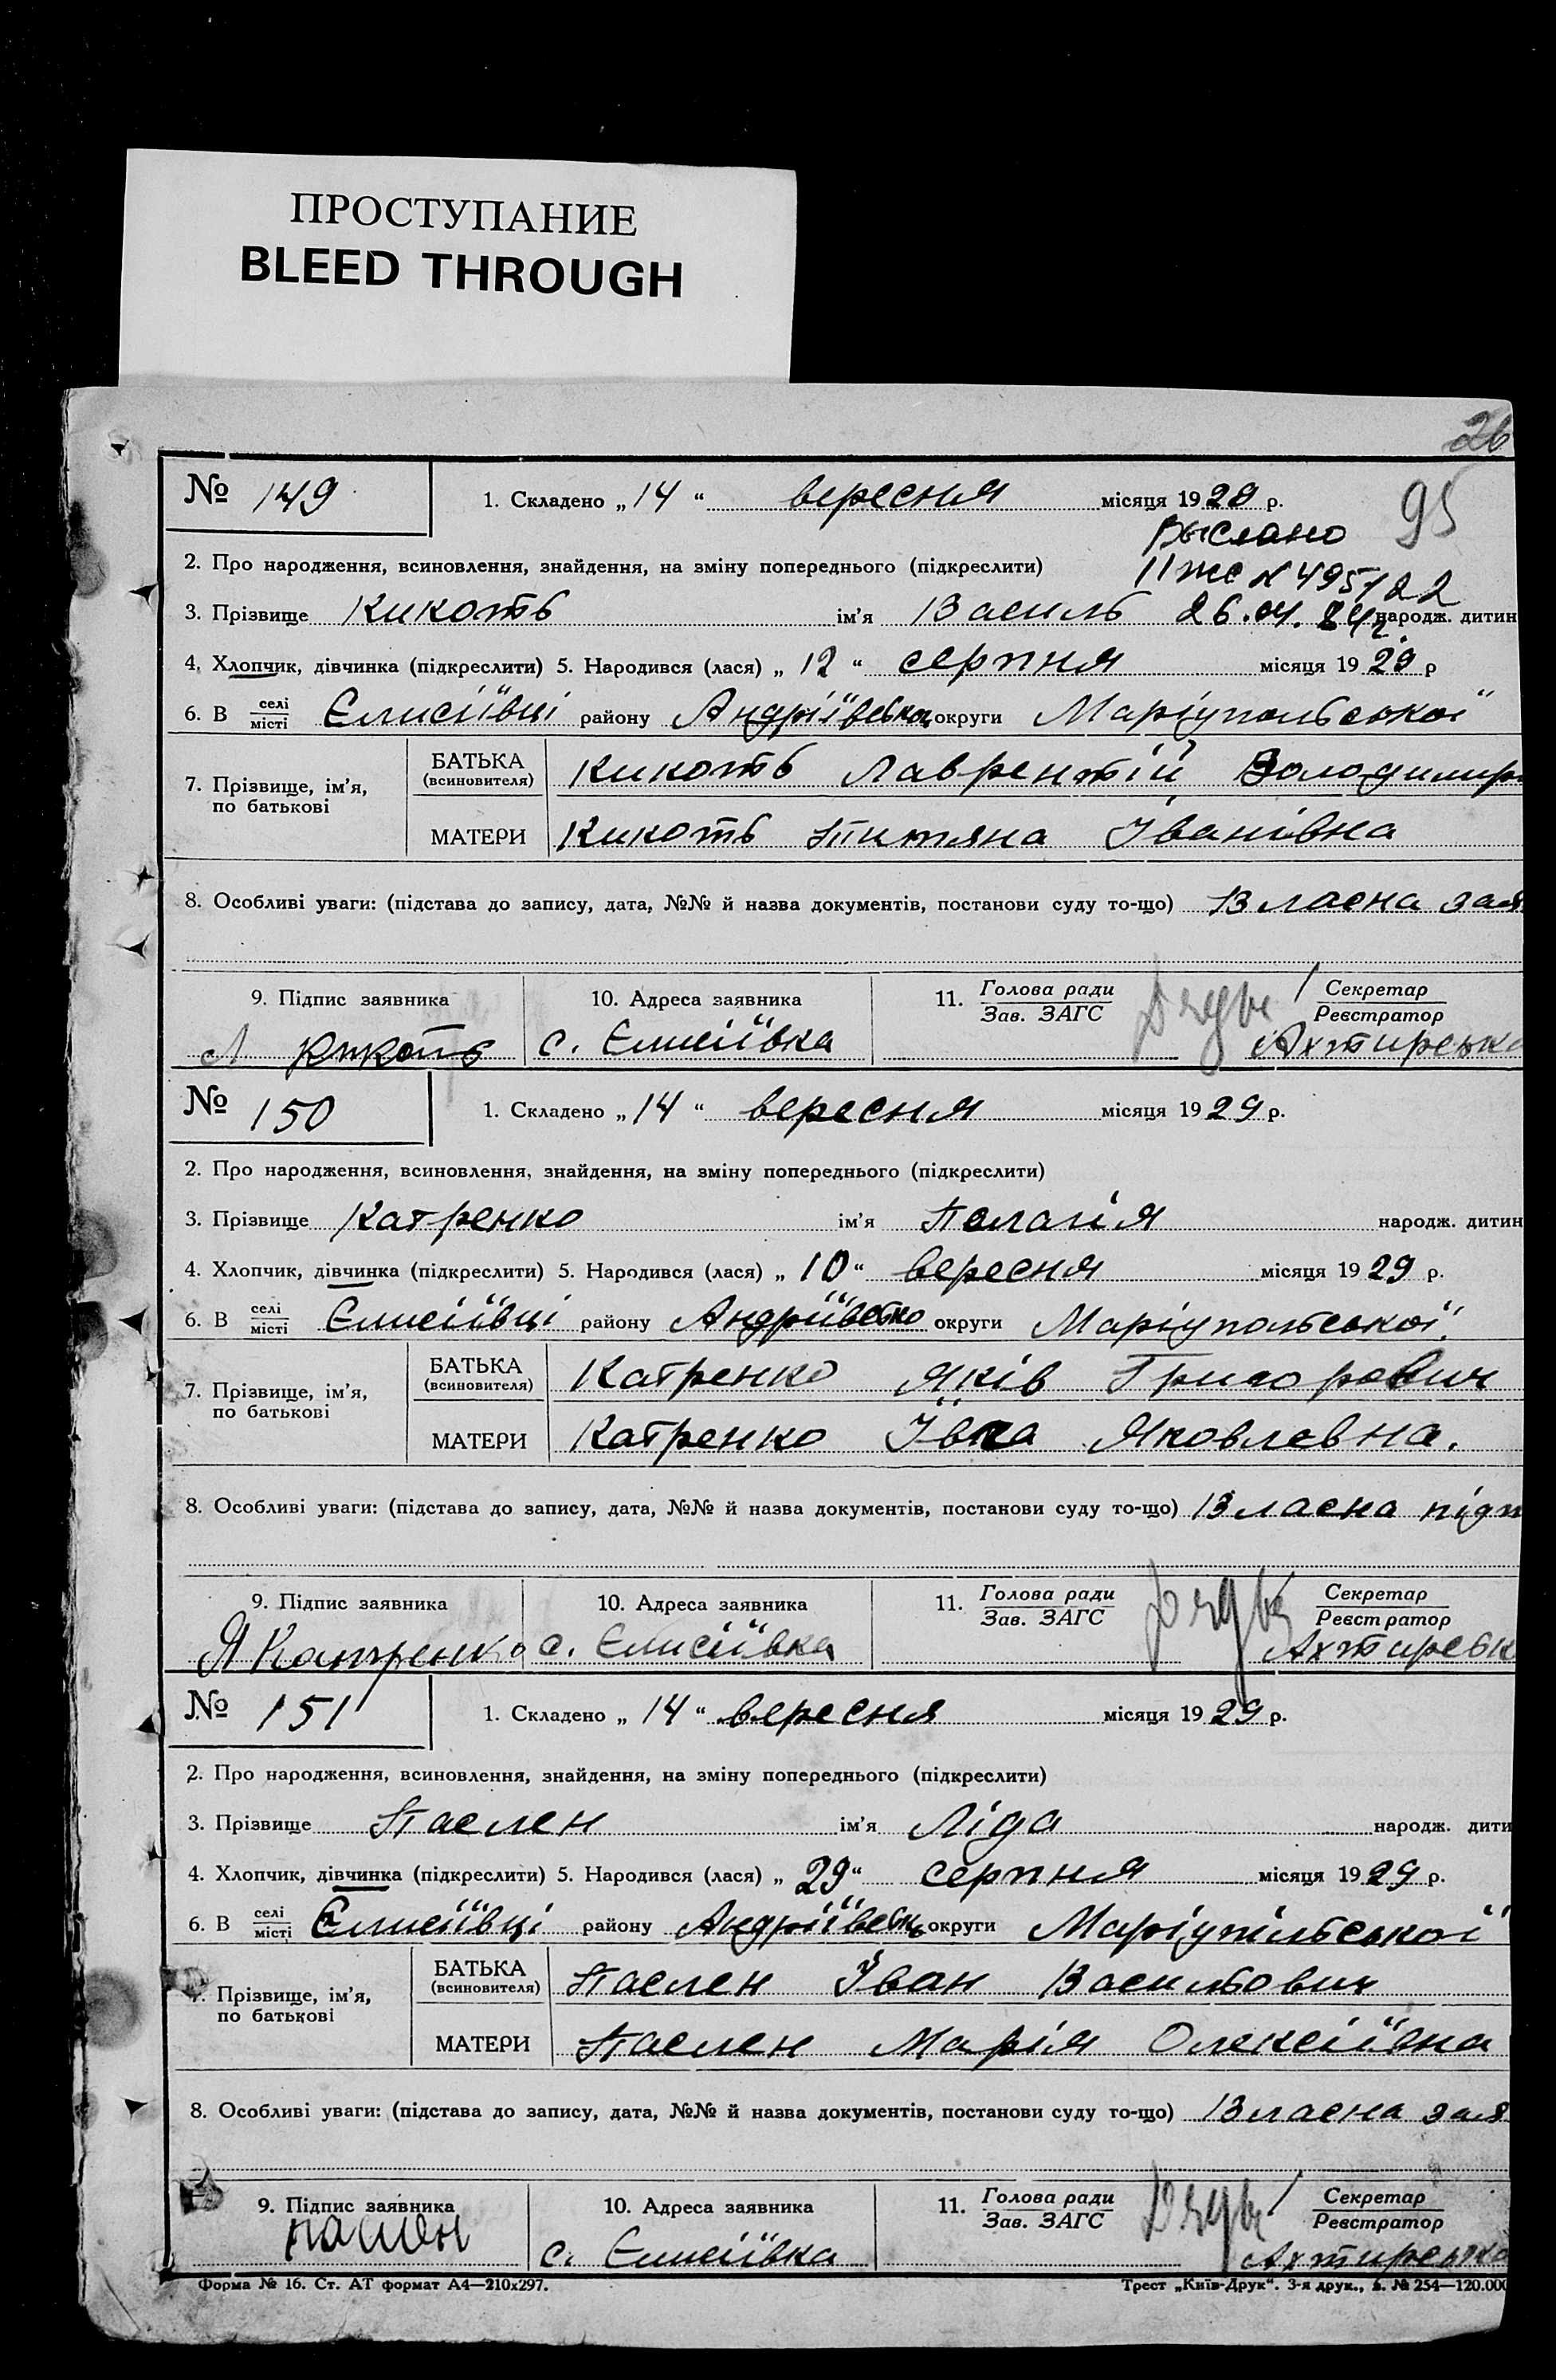 ПРОСТУПАНИЕ
BLEED THROUGH
26
95
№ 149
1. Складено „14“ вересня місяця 1929 р.
Выслано
2. Про народження, всиновлення, знайдення, на зміну попереднього (підкреслити)
3. Прізвище Кикоть ім’я Василь 26.04.84г. народж. дитин
4. Хлопчик, дівчинка (підкреслити) 5. Народився (лася) „12“ серпня місяця 1929 р
6. В селі/місті Єлисіївці району Андріївсько округи Маріупольської
7. Прізвище, ім’я, по батькові
БАТЬКА (всиновителя) Кикоть Лаврентій Володимир
МАТЕРИ Кикоть Титяна Іванівна
8. Особливі уваги: (підстава до запису, дата, №№ й назва документів, постанови суду то-що) Власна зая
9. Підпис заявника 10. Адреса заявника 11. Голова ради/Зав. ЗАГС Секретар/Реєстратор
Л Кикоть с. Єлисіївка Ахтирськ
№ 150
1. Складено „14“ вересня місяця 1929 р.
2. Про народження, всиновлення, знайдення, на зміну попереднього (підкреслити)
3. Прізвище Катренко ім’я Пелагія народж. дитин
4. Хлопчик, дівчинка (підкреслити) 5. Народився (лася) „10“ вересня місяця 1929 р.
6. В селі/місті Єлисіївці району Андріївсько округи Маріупольської.
7. Прізвище, ім’я, по батькові
БАТЬКА (всиновителя) Катренко Яків Григорович
МАТЕРИ Катренко Івга Яковлевна.
8. Особливі уваги: (підстава до запису, дата, №№ й назва документів, постанови суду то-що) Власна підп
9. Підпис заявника 10. Адреса заявника 11. Голова ради/Зав. ЗАГС Секретар/Реєстратор
Я Катренко с. Єлисіївка Ахтирськ
№ 151
1. Складено „14“ вересня місяця 1929 р.
2. Про народження, всиновлення, знайдення, на зміну попереднього (підкреслити)
3. Прізвище Паслен ім’я Ліда народж. дити
4. Хлопчик, дівчинка (підкреслити) 5. Народився (лася) „29“ серпня місяця 1929 р.
6. В селі/місті Єлисіївці району Андріївськ округи Маріупільської
7. Прізвище, ім’я, по батькові
БАТЬКА (всиновителя) Паслен Іван Васильович
МАТЕРИ Паслен Марія Олексіївна
8. Особливі уваги: (підстава до запису, дата, №№ й назва документів, постанови суду то-що) Власна зая
9. Підпис заявника 10. Адреса заявника 11. Голова ради/Зав. ЗАГС Секретар/Реєстратор
с. Єлисіївка Ахтирсько
Форма № 16. Ст. АТ формат А4—210х297. Трест „Київ-Друк“. 3-я друк., № 254—120.000